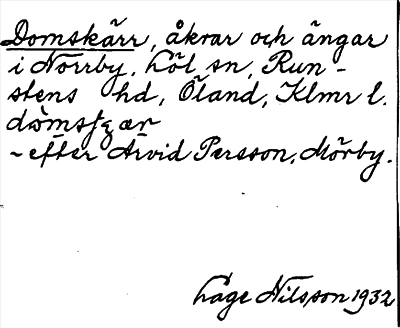 Domskärr, åkrar och ängar
i Norrby, Löt sn, Run-
stens hd, Öland, Klmr l.
~ efter Arvid Persson, Mörby.
Låge Nilsson 1932